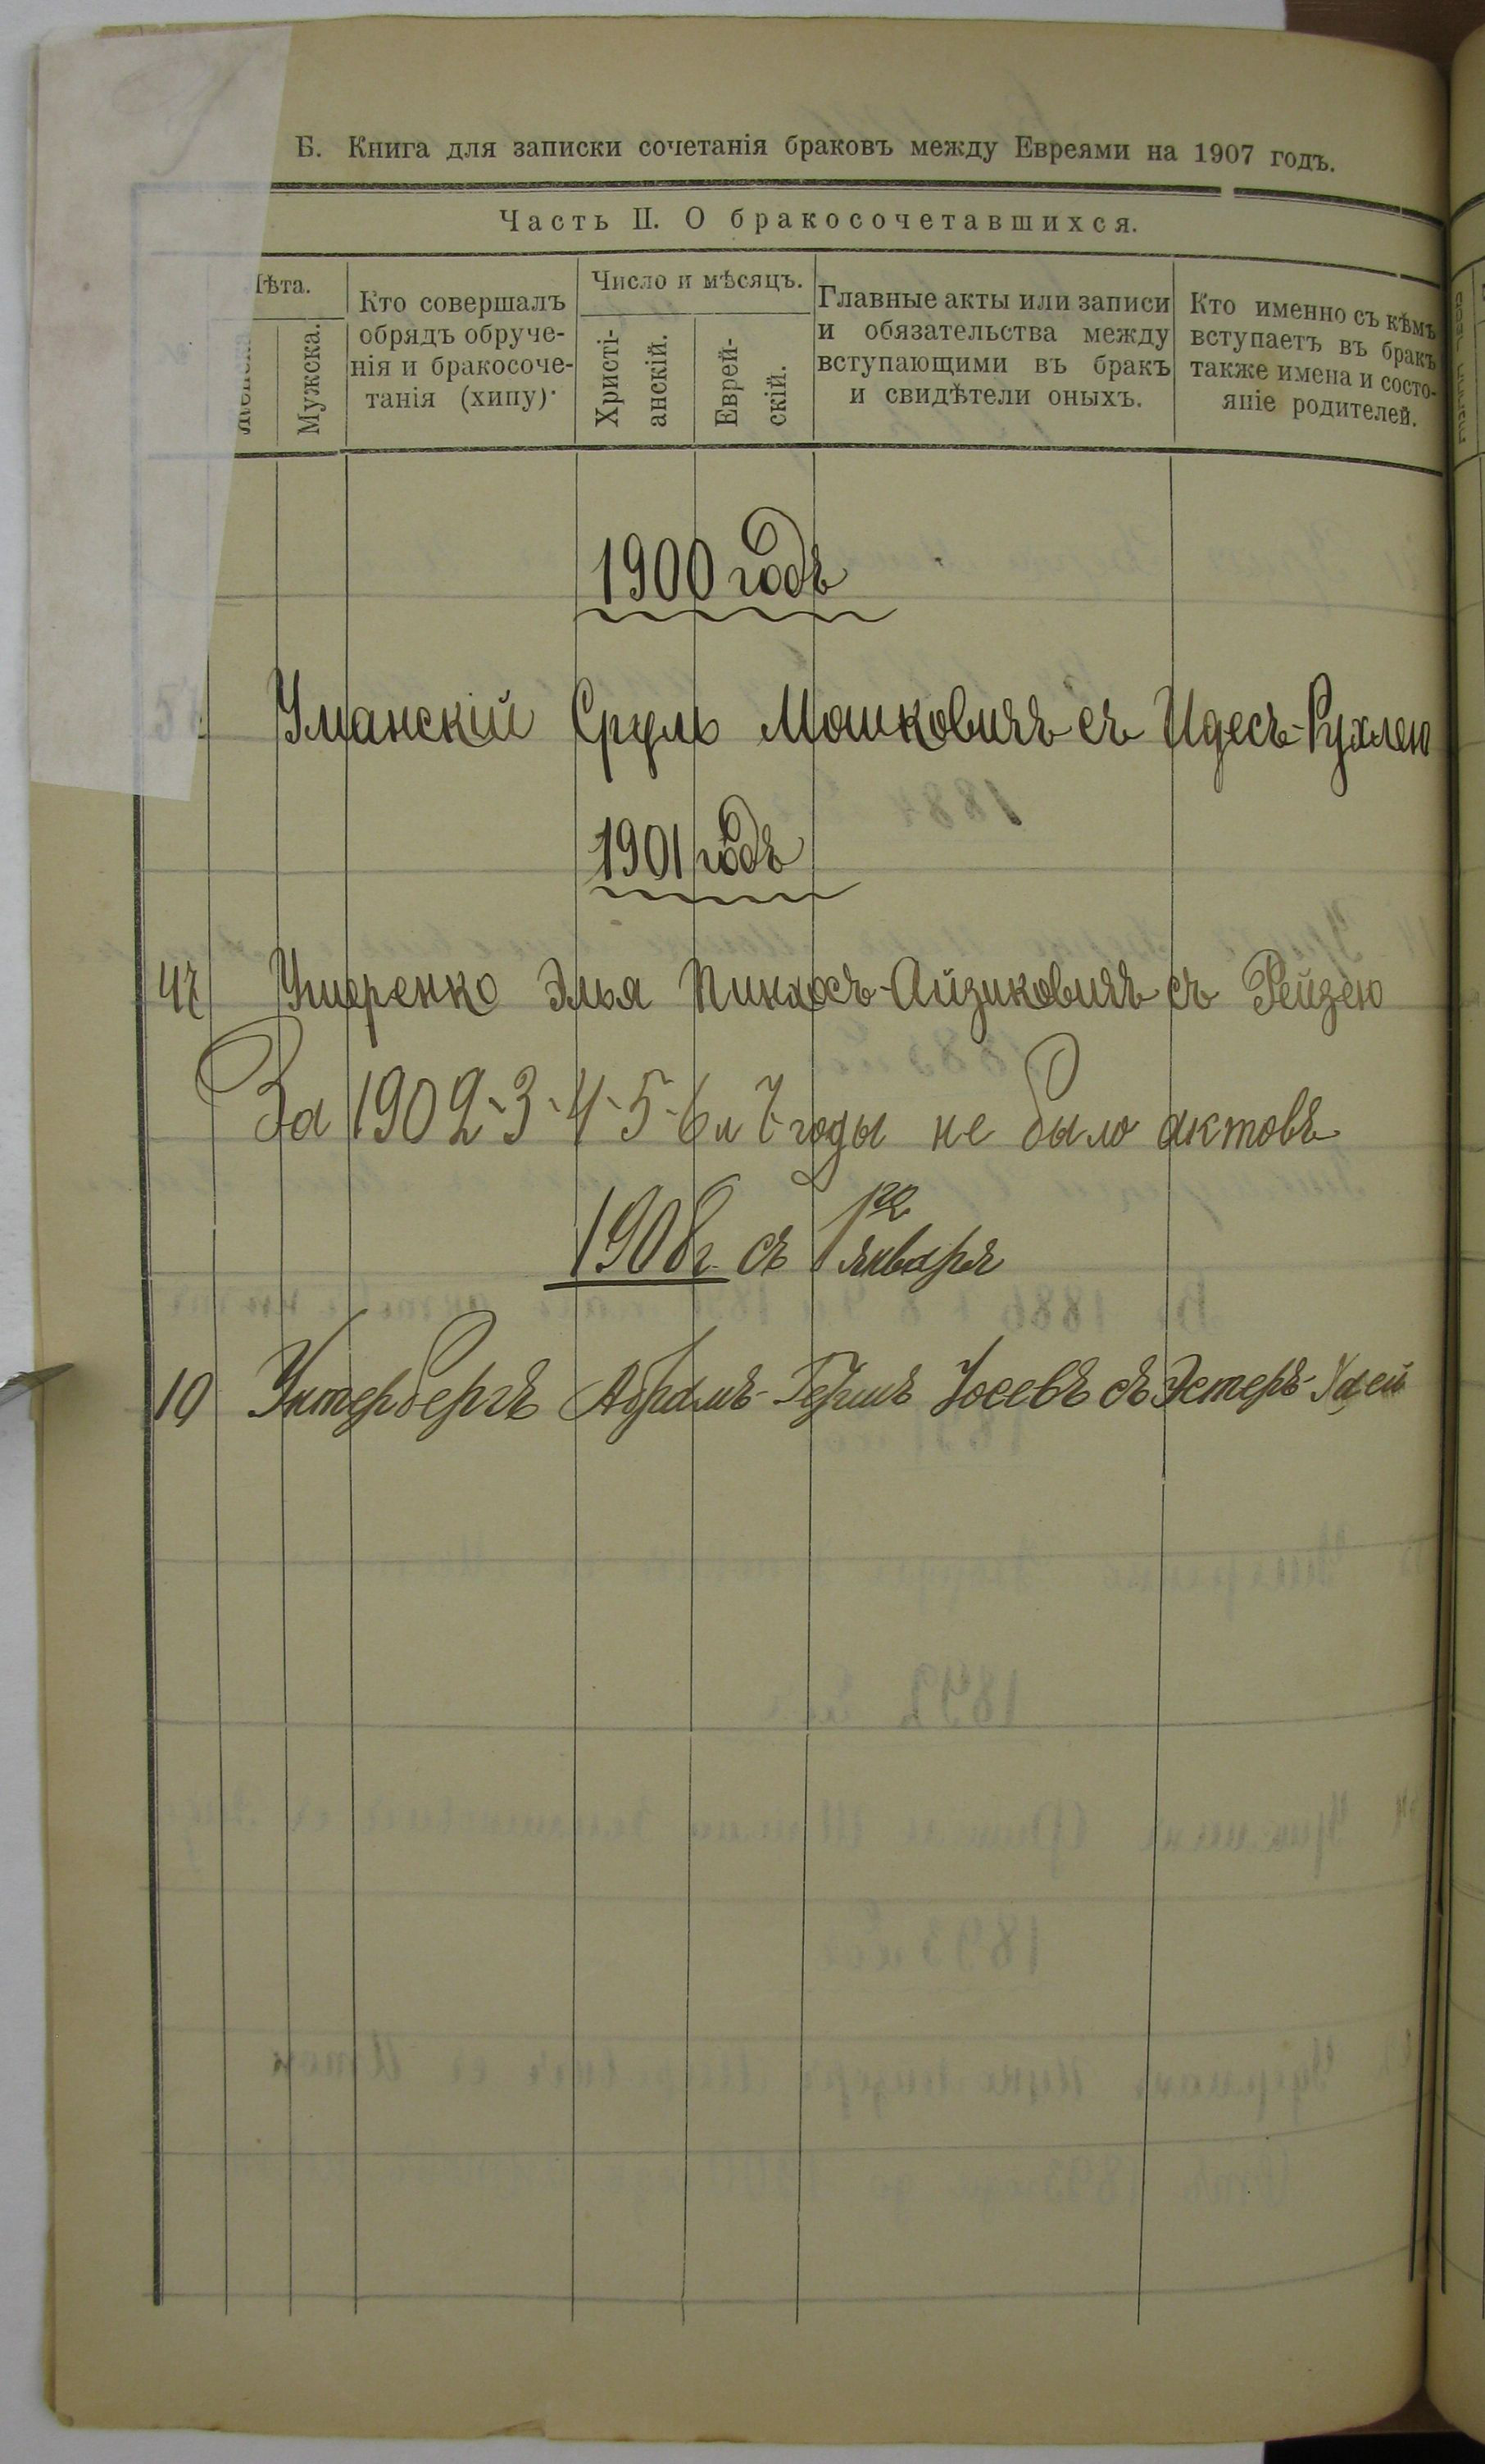 Б. Книга для записки сочетанія браковъ между Евреями на 1907 годъ.
Часть II. О бракосочетавшихся.
Лѣта.
Мужска.
Кто совершалъ
обрядъ обруче-
нія и бракосоче-
танія (хипу).
Число и мѣсяцъ.
Христі-
анскій.
Еврей-
скій.
Главные акты или записи
и обязательства между
вступающими въ бракъ
и свидѣтели оныхъ.
Кто именно съ кѣмъ
вступаетъ въ бракъ
также имена и состо-
яніе родителей.
1900 годъ
Уманскій Сруль Мошковичъ съ Идесъ-Рухлею
1901 годъ
47 Ушеренко Элья Пинхосъ-Айзиковичъ съ Рейзею
За 1902-3-4-5-6 и 7 годы не было актовъ
1908 г. съ 1го января
10 Унтербергъ Абрамъ-Гершъ Іосевъ съ Эстеръ-Хаей